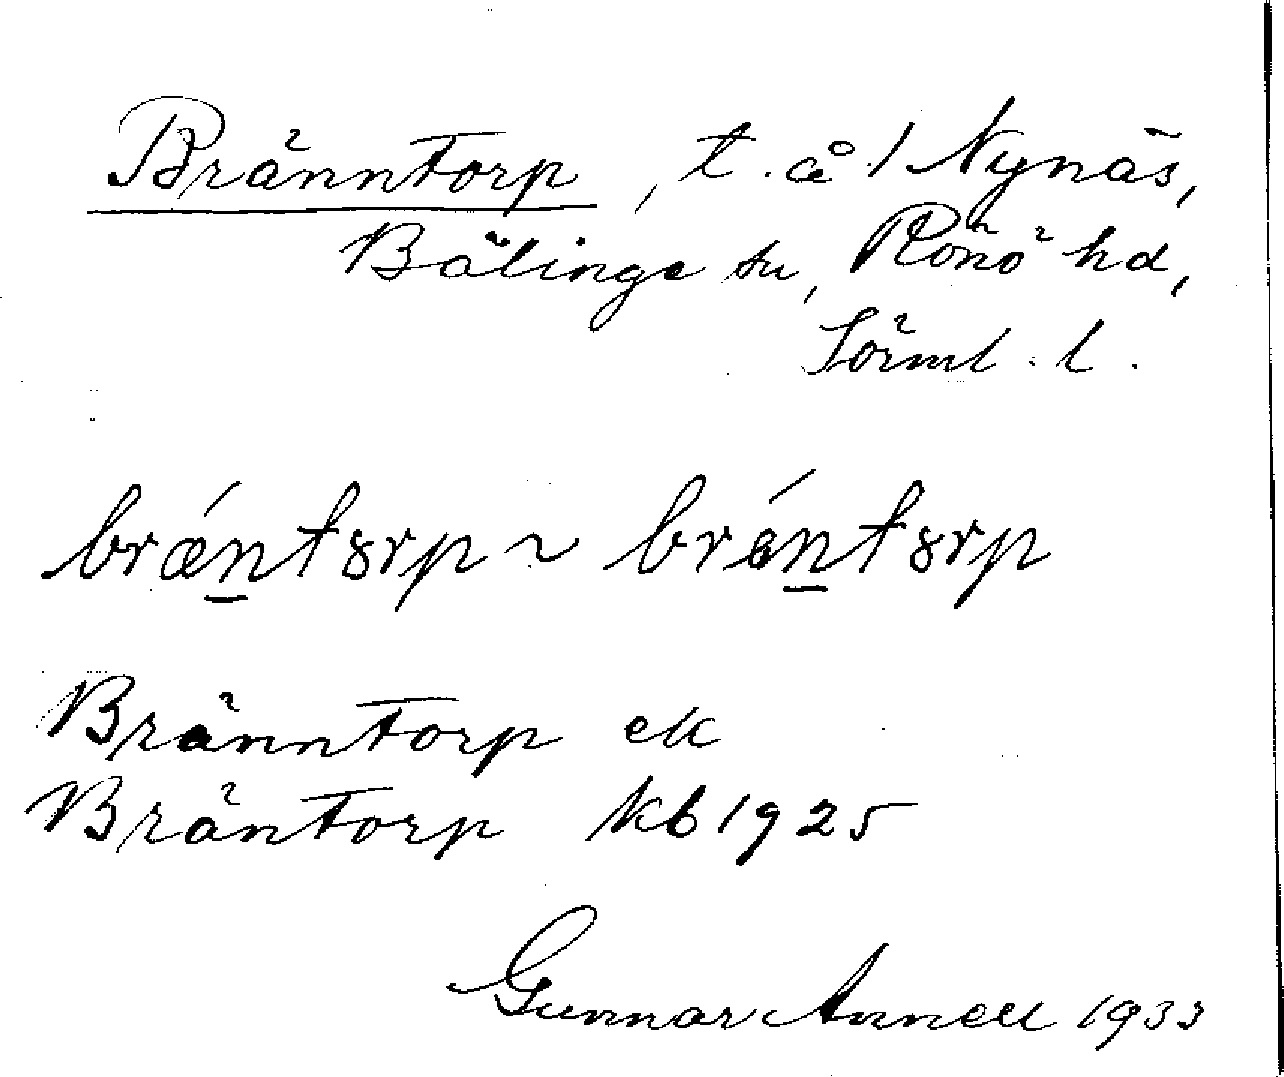 Bränntorp, t. å 1 Nynäs,
Bälinge sn, Rönö hd,
Sörml. l.
brǽn̲tȣrp ~ brén̲tȣrp
Bränntorp ek
Bräntorp kb 1925
Gunnar Annell 1933